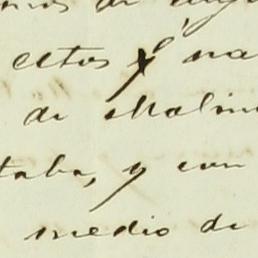 estos y na
de Molin
taba, y con
medio de